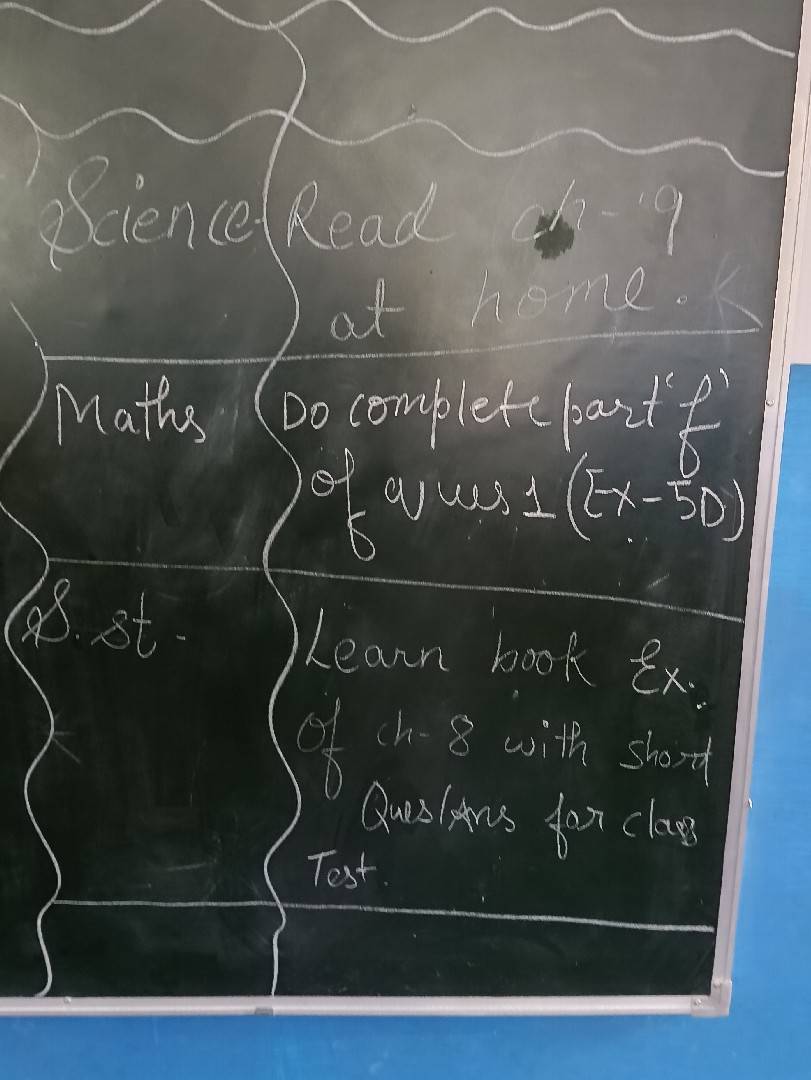 Science Read ch-9
at home.
Maths Do complete part 'f'
of ques 1 (Ex-5D)
S. st - Learn book Ex.
of ch-8 with short
Ques/Ans for class
Test.